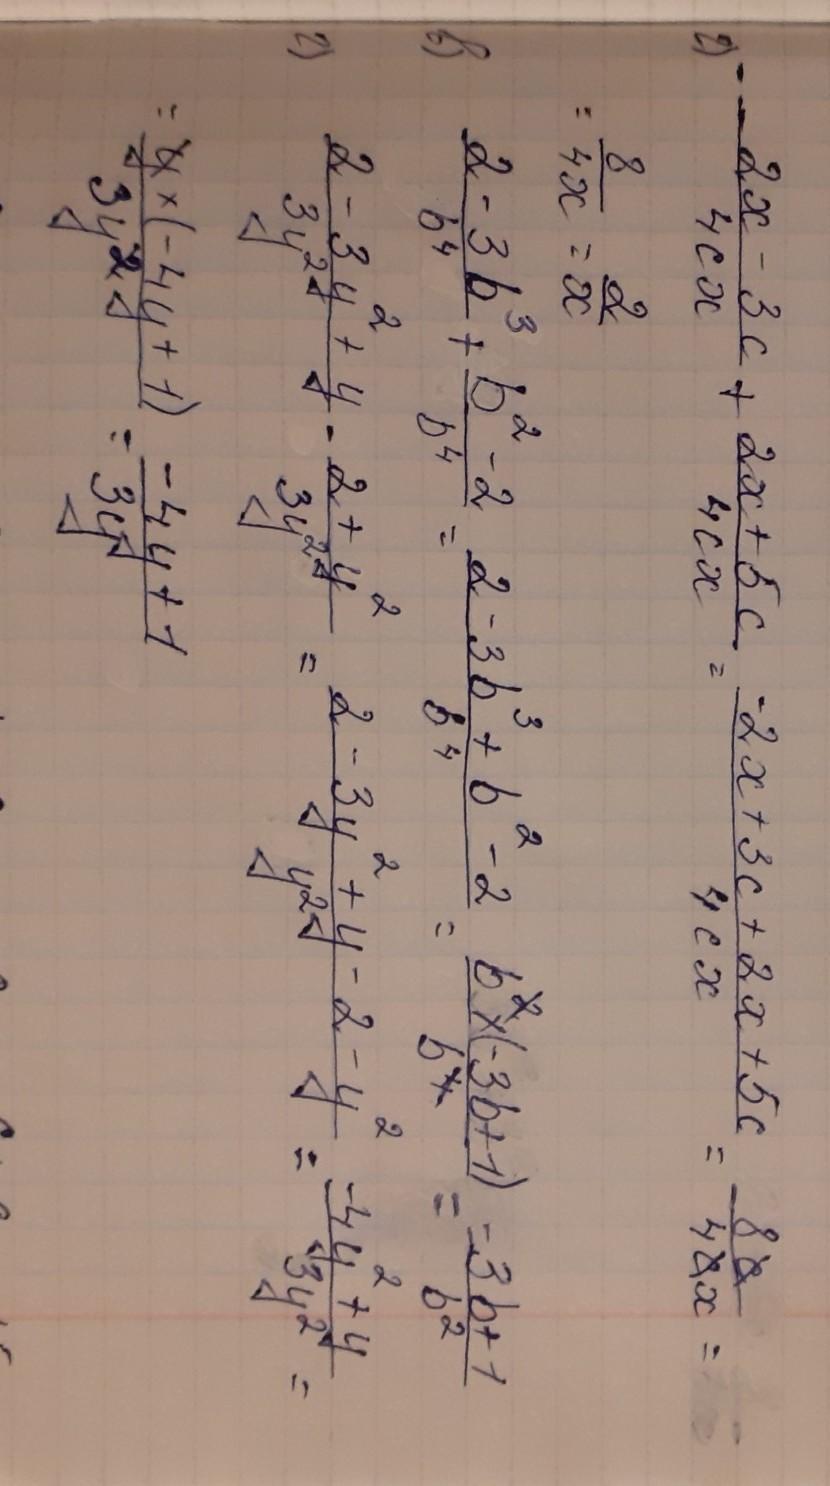 г) - (2x - 3c)/(4cx) + (2x + 5c)/(4cx) = (-2x + 3c + 2x + 5c)/(4cx) = (8c)/(4cx) =
= 8/(4x) = 2/x
в) (2 - 3b³)/b⁴ + (b² - 2)/b⁴ = (2 - 3b³ + b² - 2)/b⁴ = (b² × (-3b + 1))/b⁴ = (-3b + 1)/b²
г) (2 - 3y² + y)/(3y²) - (2 + y²)/(3y²) = (2 - 3y² + y - 2 - y²)/(y²) = (-4y² + y)/(3y²) =
= (y × (-4y + 1))/(3y²) = (-4y + 1)/(3y)